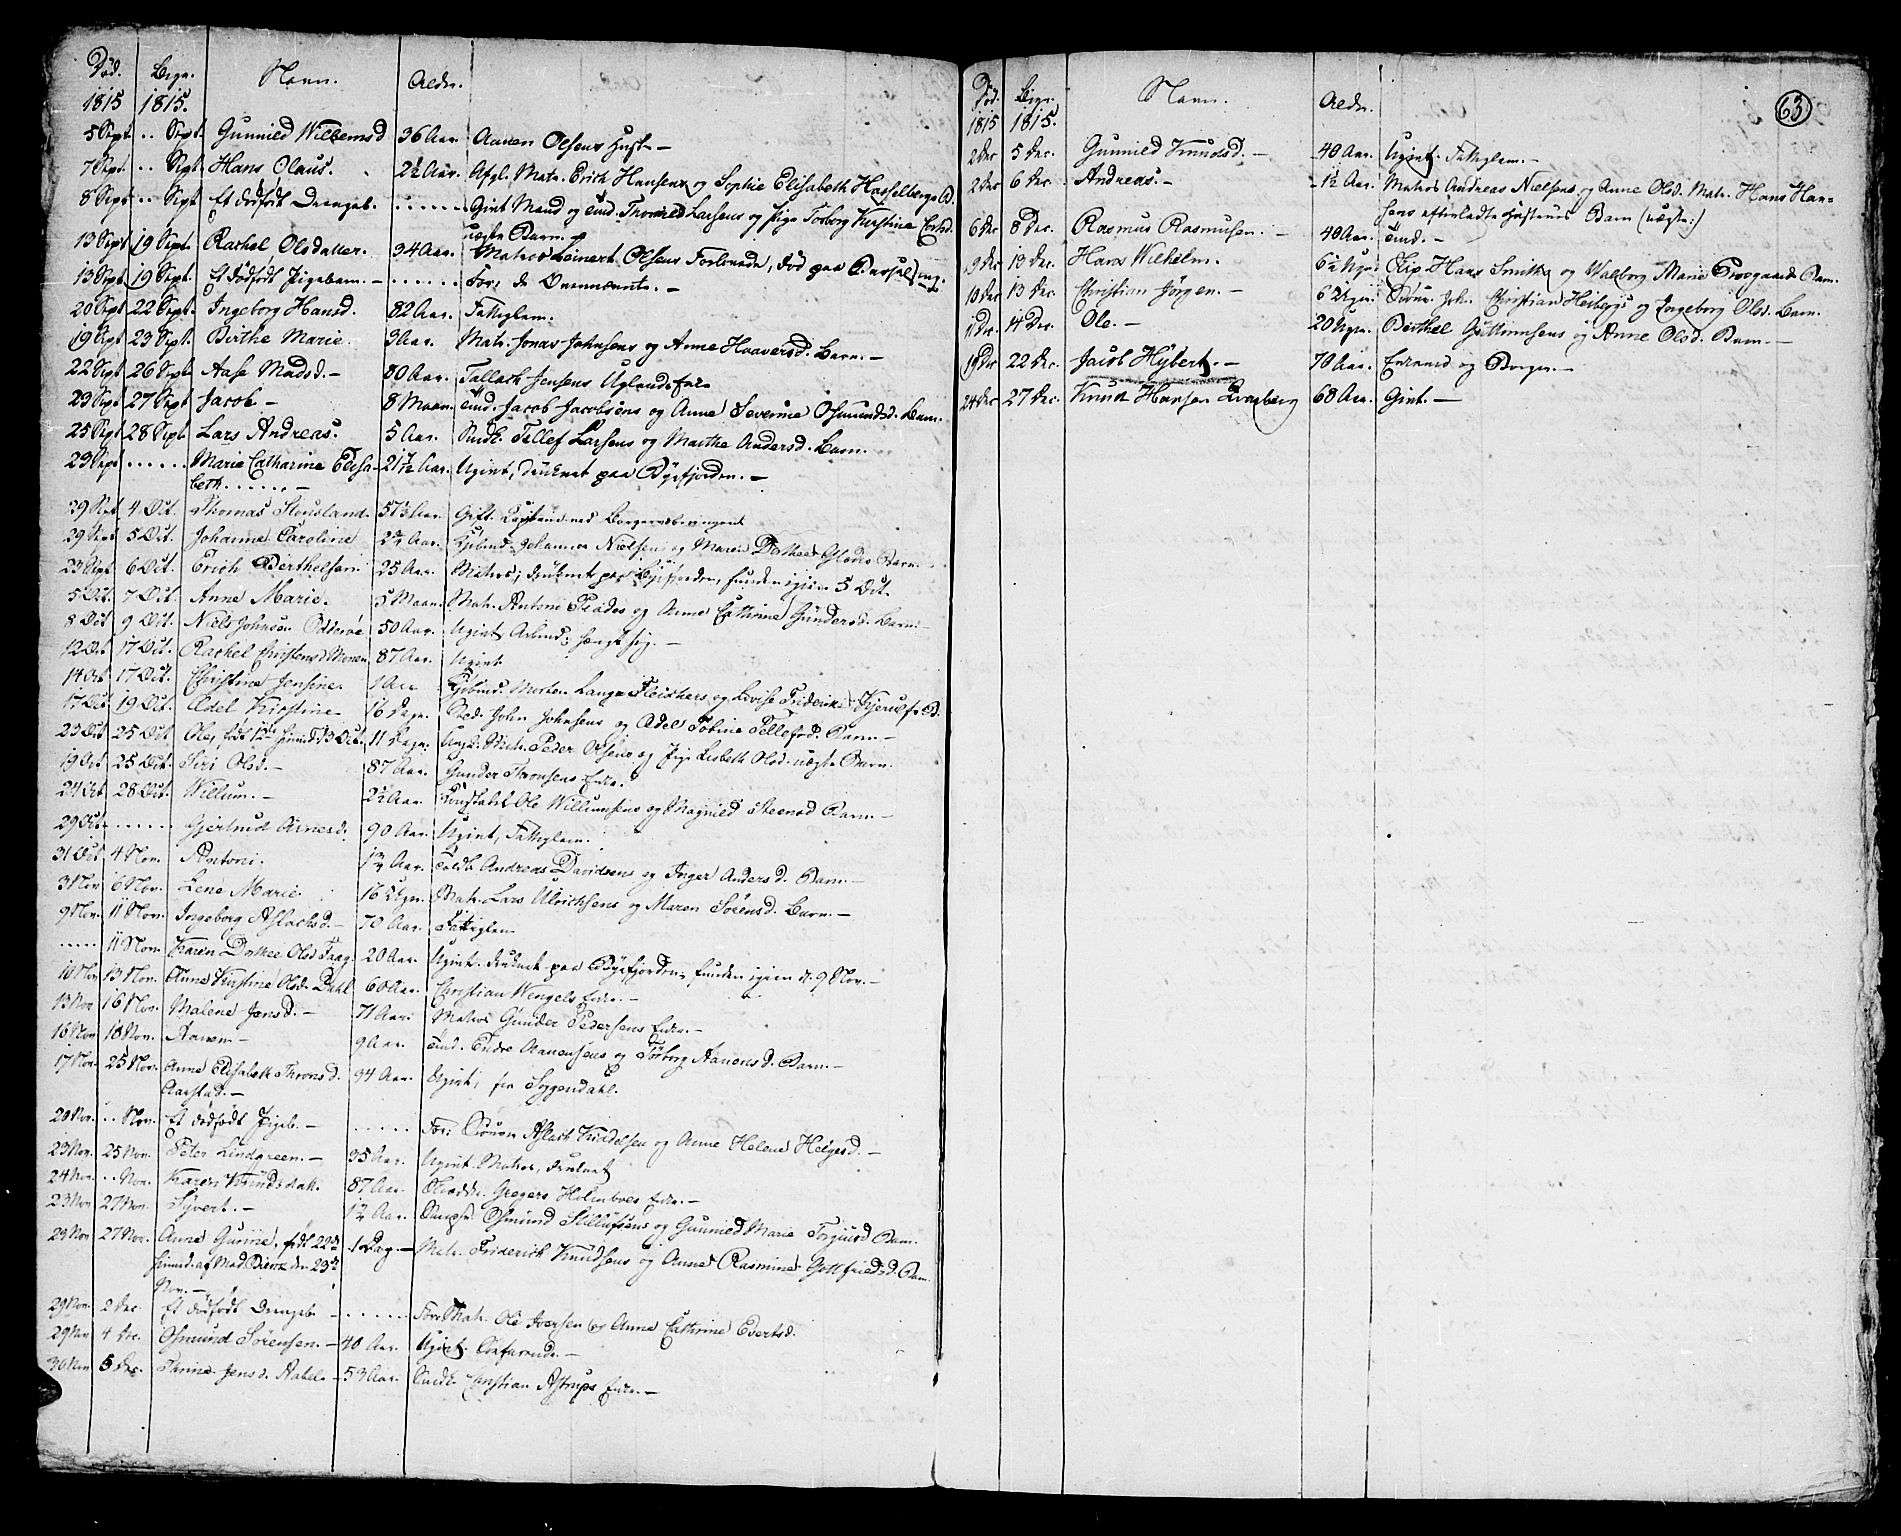 Død. Begr. Navn. Alder.
1815 1815.
5 Sept. .. Sept. Gunnild Willemsd 36 Aar. Aanen Olsens Hust. —
7 Sept. .. Sept. Hans Olaus. 2½ Aar. Afgl. Matr. Erich Hansens og Sophie Elisabeth Hasselbergs B.
8 Sept. .. Sept. Et dødfødt Drengeb. ...... Gift Mand og Pige Torborg Kirstine
uægte Barn.
13 Sept. 19 Sept. Rachel Olsdatter. 34 Aar. Matros Leinert Olsens Forlovede, død paa Barsel seng.
13 Sept. 19 Sept. Et dødfødt Pigebarn. — ...... For: de Ovennævnte. —
20 Sept 22 Sept. Ingeborg Hansd. 82 Aar. Fattiglem.
19 Sept 23 Sept. Birthe Marie. 3 Aar. Matr. Jonas Johnsens og Anne Haaversd. Barn. —
22 Sept 26 Sept Aase Madsd. — 80 Aar. Tallach Jensens Uglands Enke
23 Sept 27 Sept Jacob — 8 Maan. Jacob Jacobsens og Anne Severine Osmundsd. Barn.
25 Sept 28 Sept. Lars Andreas. 5 Aar. Snedk. Tellef Larsens og Marthe Andersd. Barn.
23 Sept ...... Marie Catharine Elisa- 21 Aar. Ugift, druknet paa Byefjorden. —
beth. ......
29 Sept 4 Oct. Thomas 57½ Aar. Gift. Capitaine ved Borgervæbningen
29 Sept 5 Oct. Johanne Caroline 2¼ Aar. Kjøbmd. Johannes Nielsens og Maren Dorthea Barn.
23 Sept 6 Oct. Erich Berthelsen 25 Aar. Matros, druknet paa Byefjorden, funden igien 5 Oct.
5 Oct. 7 Oct. Anne Marie. 5 Maan. Matr. Antoni Prades og Anne Cathrine Gundersd. Barn.
8 Oct 9 Oct. Niels Johnsen Odderøe 50 Aar. Ugift Arbmd: hængt sig. —
12 Oct 17 Oct. Rachel Christensd. Monen 87 Aar. Ugift
14 Oct 17 Oct. Christine Jensine. 1 Aar Kjøbmd. Morten Lange Fleischers og Lovise Friderike Kjerulf B.
17 Oct 19 Oct. Adel Kirstine 16 Dage. John Johnsens og Adel Tobine Tellefsd. Barn —
23 Oct 25 Oct Ole, født 13 Oct. 11 Dage. Ungk. Matr. Peder Olsens og Pige Lisbeth Olsd. uægte Barn.
19 Oct 25 Oct. Siri Olsd. — 87 Aar. Gunder Thronsens Enke.
24 Oct 28 Oct. Willum. — 2½ Aar. Constabel Ole Willumsens og Magnild Steensd Barn —
29 Oct. ...... Gjertrud Arnesd. 90 Aar. Ugift, Fattiglem.
31 Oct 4 Nov. Antoni. 1¾ Aar. Toldb. Andreas Davidsens og Inger Andersd. Barn. —
3 Nov 6 Nov. Lene Marie. 16 Uger. Matr. Lars Ulrichsens og Maren Sørensd. Barn. —
9 Nov. 11 Nov. Ingeborg Aslachsd. — 70 Aar. Fattiglem
..... 11 Nov. Karen Dorthea Olsd 20 Aar. Ugift. druknet paa Byefjorden, funden igien d. 9 Nov. —
10 Nov 13 Nov. Anne Kirstine Olsd. Dahl 60 Aar. Christian Wengels Enke. —
13 Nov 16 Nov. Malene Jensd. — 71 Aar. Matros Gunder Pedersens Enke. —
16 Nov 18 Nov. Aanen — 9 Aar. Endre Aanensens og Torborg Aanensd. Barn. —
17 Nov. 25 Nov. Anne Elisabeth Thronsd. 94 Aar. Ugift, fra Soggendahl.
Aarstad. —
20 Nov. .. Nov. Et dødfødt Pigeb. — ...... For: Aslach Knudsen og Anne Helene Helgesd. —
23 Nov. 25 Nov. Peter Lindgreen. — 35 Aar. Ugift Matros, druknet
24 Nov. .. Nov. Karen Knudsdatt. 87 Aar. Gregers Holmboes Enke. —
23 Nov 27 Nov. Syvert. — 1¼ Aar. Osmund Stillufsens og Gunnild Marie Torgiusd Barn.
29 Nov 27 Nov. Anne Gurine, født 22de 1 Dag. — Matr. Friderich Knudsens og Anne Rasmine Gottfriedsd. Barn
hiemd. af Mad. den 23de
Nov. —
29 Nov. 2 Dec. Et dødfødt Drengeb. — ...... For: Matr. Ole Iversen og Anne Cathrine Evertsd.
29 Nov 4 Dec. Osmund Sørensen. — 40 Aar. Ugift. —
30 Nov 5 Dec. Thrine Jensd. Aabel — 53 Aar. Snedk. Christian Astrups Enke. —
63
Død. Begr. Navn. Alder.
1815 1815.
2 Dec 5 Dec. Gunnild Knudsd. — 40 Aar. Ugift. Fattiglem. —
2 Dec 6 Dec. Andreas. — 1½ Aar. Matros Andreas Nielsens og Anne Olsd. Matr. Hans Han-
sens efterladte Hustrues Barn (uægte:)
6 Dec 8 Dec. Rasmus Rasmusen. — 40 Aar.
9 Dec 13 Dec. Hans Wilhelm. 6½ Uge. Skip. Hans Smith og Walborg Marie Barn.
10 Dec 13 Dec. Christian Jörgen. — 6 Uger. Joh. Christian Heibergs og Ingeborg Olsd. Barn.
11 Dec. 14 Dec. Ole. — 20 Uger. Berthel Guttormsens og Anne Olsd. Barn. —
19 Dec 22 Dec. Jacob Hybert. — 70 Aar. Enkemand og Borger. —
24 Dec 27 Dec. Knud Hansen 68 Aar. Gift. —